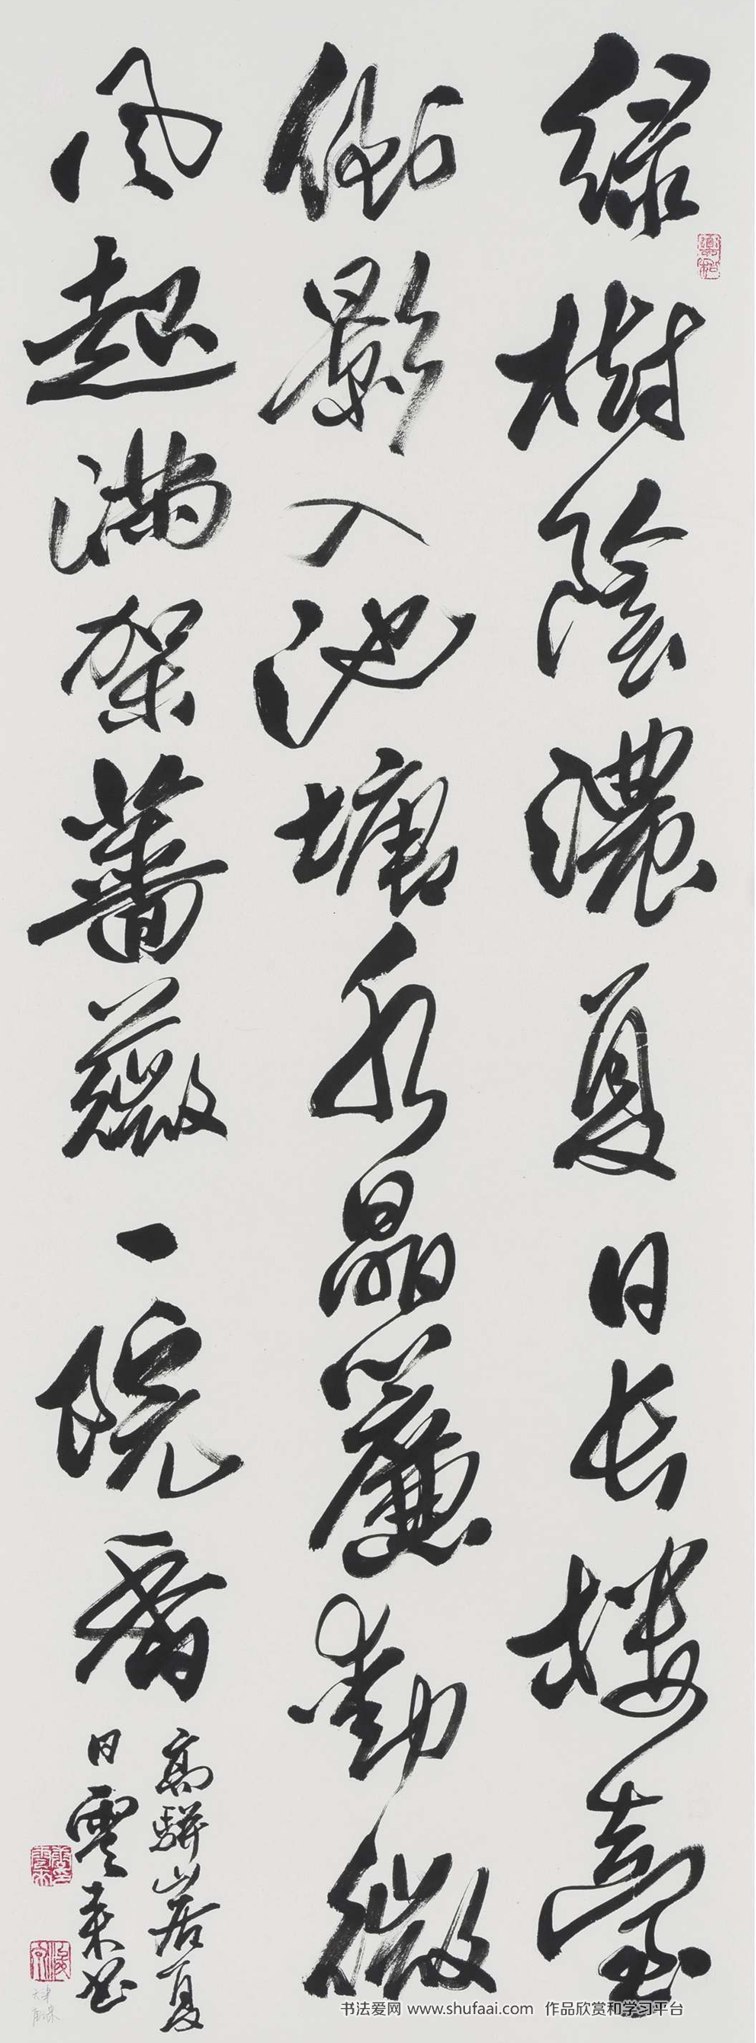 绿樹陰濃夏日长楼臺
倒影入池塘水晶簾動微
风起满架薔薇一院香
高駢山居夏
日雲来书
书法爱网 www.shufaai.com 作品欣赏和学习平台